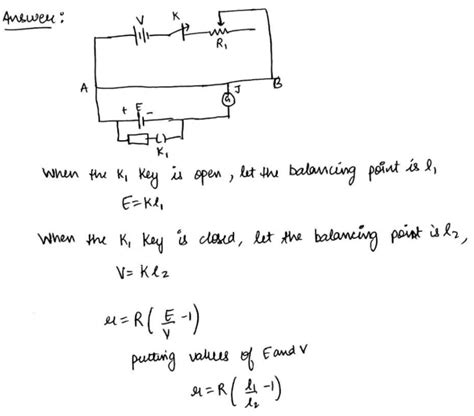 Answer :
V
K
R₁
A
J
B
G
+ E -
K₁
When the K₁ Key is open, let the balancing point is l₁
E=Kl₁
When the K₁ Key is closed, let the balancing point is l₂,
V= Kl₂
r = R ( E/V -1)
putting values of E and V
r = R ( l₁/l₂ -1)